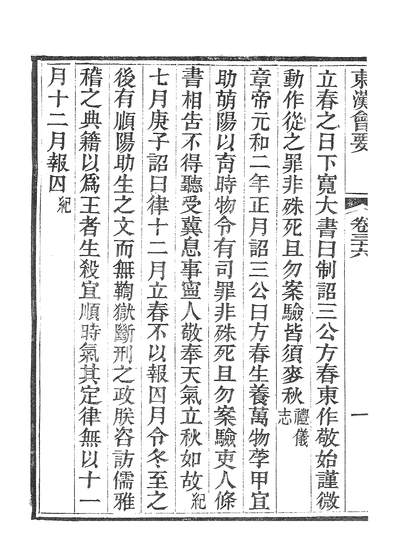 東漢會要 卷三六 一
立春之日下寬大書曰制詔三公方春東作敬始謹微
動作從之罪非殊死且勿案驗皆須麥秋禮儀志
章帝元和二年正月詔三公曰方春生養萬物莩甲宜
助萌陽以育時物令有司罪非殊死且勿案驗吏人條
書相告不得聽受冀息事寧人敬奉天氣立秋如故紀
七月庚子詔曰律十二月立春不以報囚月令冬至之
後有順陽助生之文而無鞫獄斷刑之政朕咨訪儒雅
稽之典籍以爲王者生殺宜順時氣其定律無以十一
月十二月報囚紀